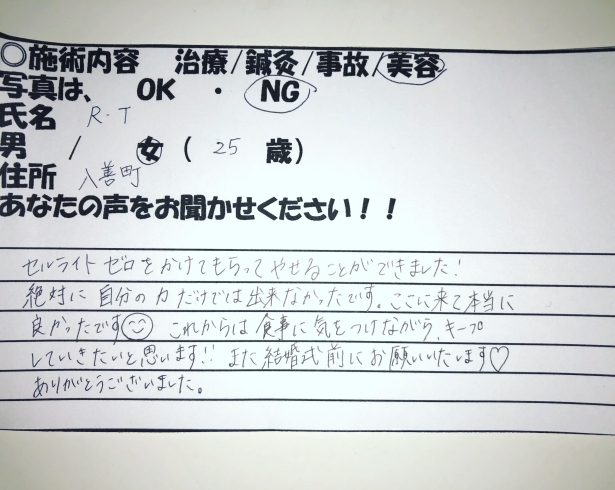 〇施術内容　治療/鍼灸/事故/美容
写真は、　OK　・　NG
氏名　R.T
男　/　女（　25　歳）
住所　入善町
あなたの声をお聞かせください！！
セルライト ゼロをかけてもらって やせることができました！
絶対に 自分の力 だけでは 出来なかったです。ここに来て本当に
良かったです☺ これからは 食事に 気をつけながら、キープ
していきたいと思います!! また 結婚式前に お願いいたします♡
ありがとうございました。